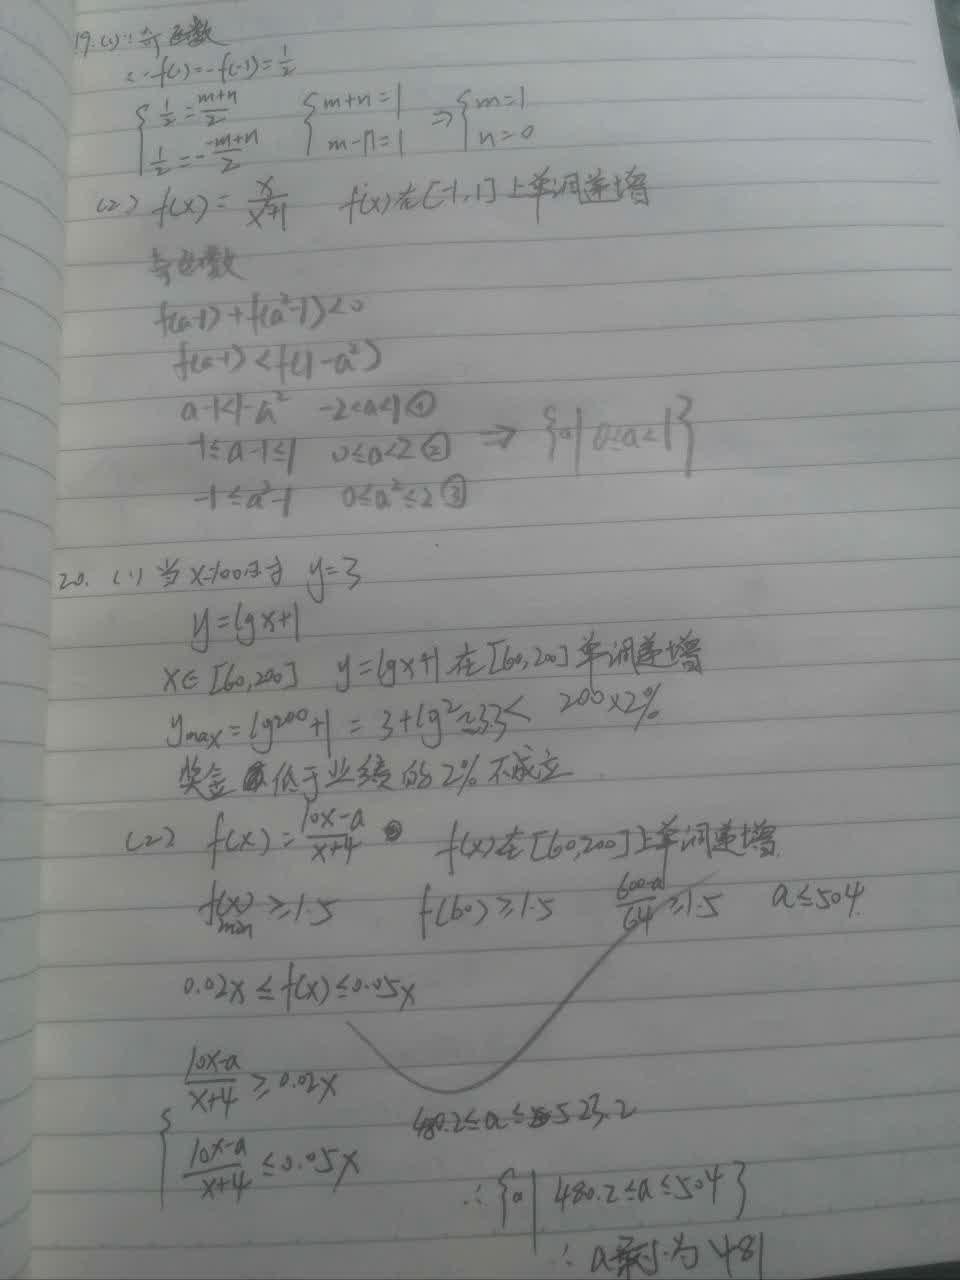 19.(1)∵奇函数
∴f(1)=-f(-1)=1/2
{ 1/2=(m+n)/2  { m+n=1  ⇒ { m=1
1/2=-(-m+n)/2  m-n=1  n=0
(2) f(x)=x/(x²+1)  f(x)在[-1,1]上单调递增
奇函数
f(a-1)+f(a²-1)<0
f(a-1)<f(1-a²)
a-1<1-a²  -2<a<1①
-1≤a-1≤1  0≤a<2②  ⇒ {a|0≤a<1}
-1≤a²-1  0≤a²≤2③
20. (1) 当x=100时 y=3
y=lgx+1
x∈[60,200]  y=lgx+1在[60,200]单调递增
ymax=lg200+1=3+lg2≈3.3<  200×2%
奖金低于业绩的2%不成立
(2) f(x)=(10x-a)/(x+4)  f(x)在[60,200]上单调递增
f(x)min≥1.5  f(60)≥1.5  (600-a)/64≥1.5  a≤504
0.02x≤f(x)≤0.05x
{ (10x-a)/(x+4)≥0.02x
480.2≤a≤523.2
(10x-a)/(x+4)≤0.05x
∴{a|480.2≤a≤504}
∴a为481